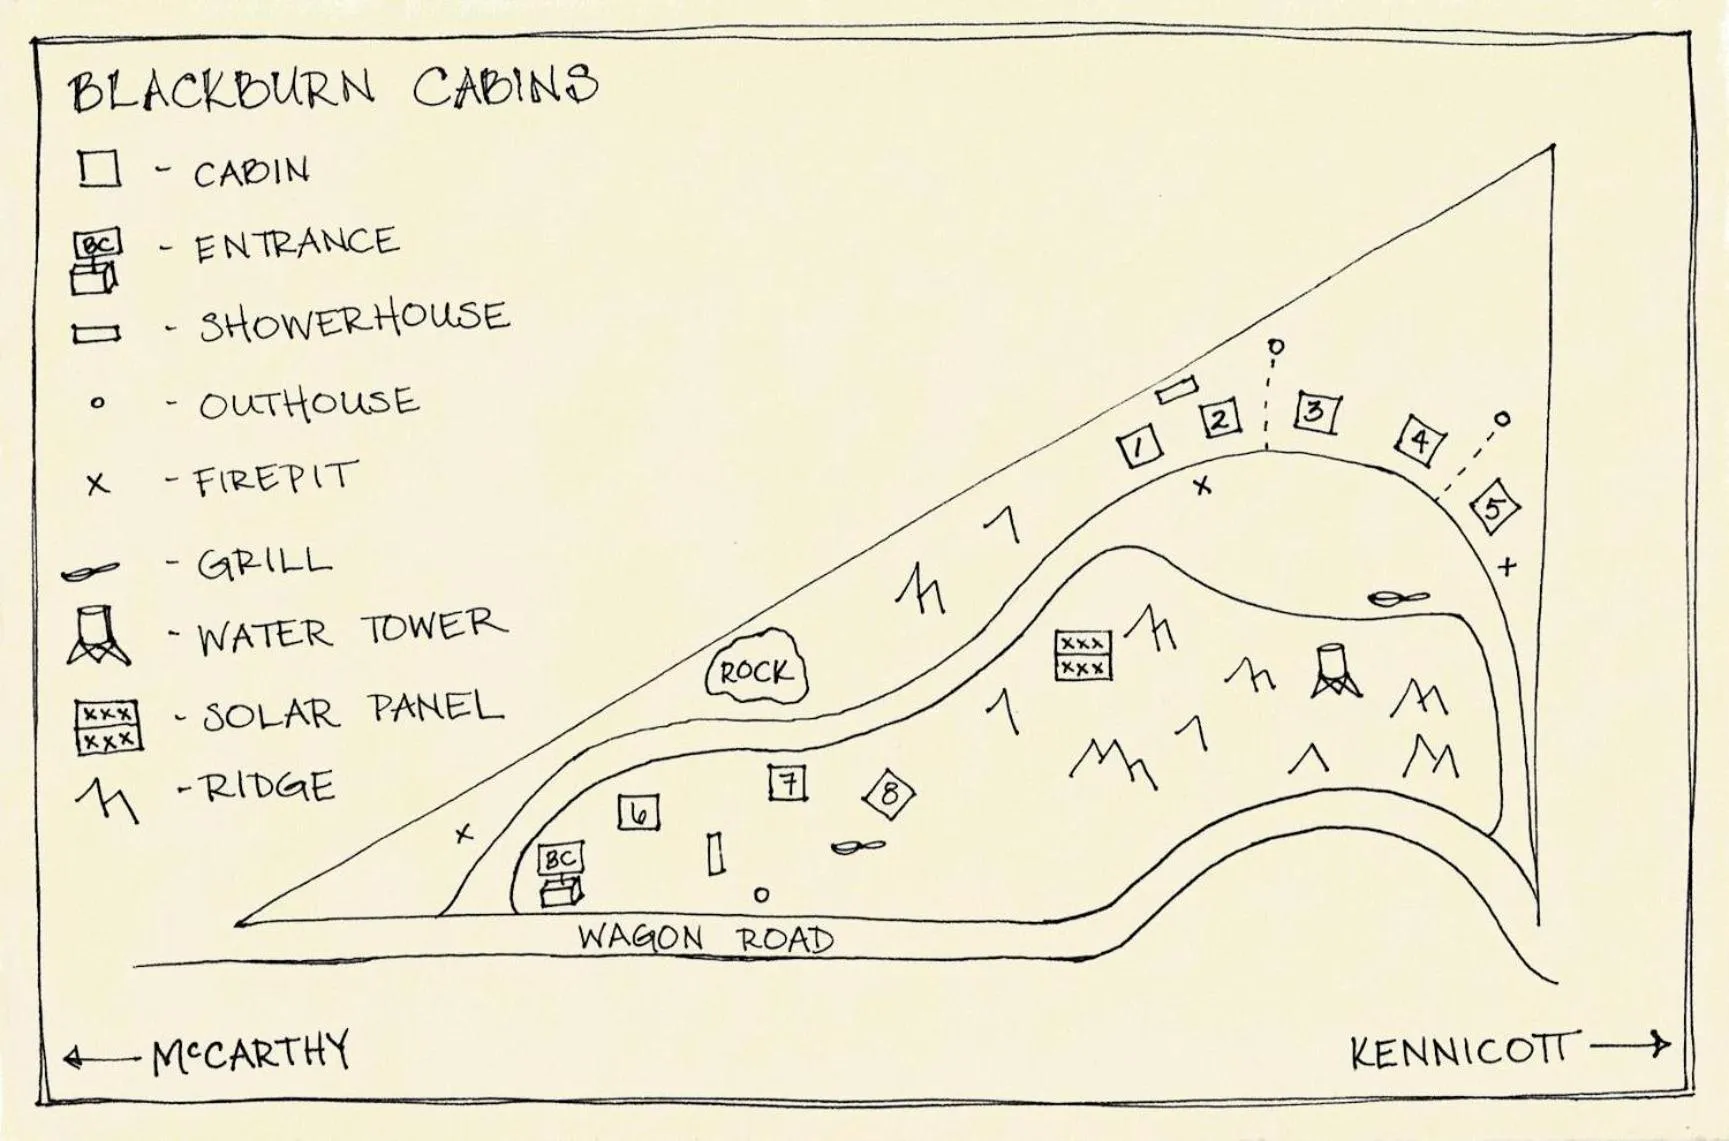 BLACKBURN CABINS
- CABIN
BC - ENTRANCE
- SHOWERHOUSE
- OUTHOUSE
x - FIREPIT
- GRILL
- WATER TOWER
xxx
xxx
- SOLAR PANEL
- RIDGE
1
2
3
4
5
x
+
ROCK
xxx
xxx
6
7
8
x
BC
WAGON ROAD
← McCARTHY
KENNICOTT →